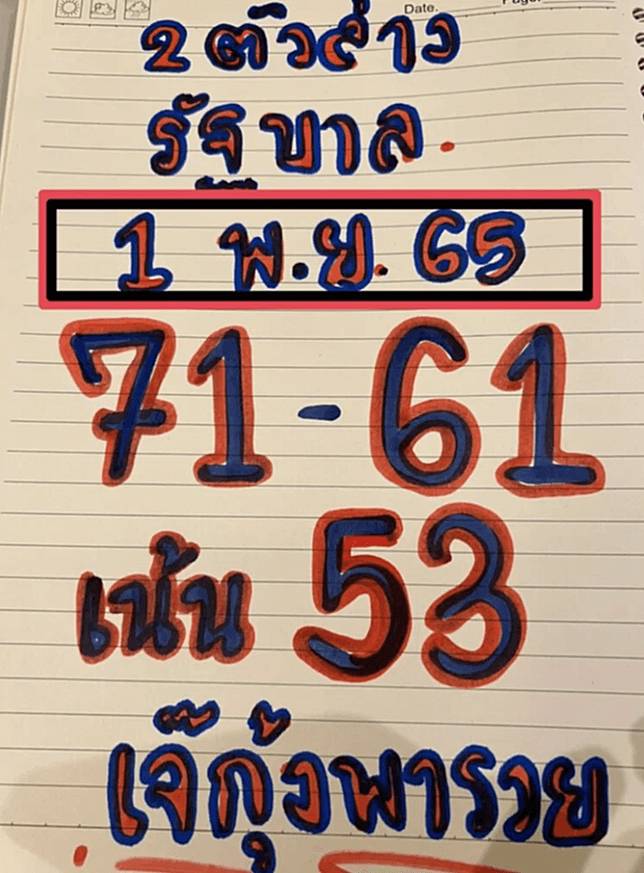 Date.
2 ตัวล่าง
รัฐบาล.
1 พ.ย. 65
71-61
เน้น 53
เจ๊กุ้งพารวย